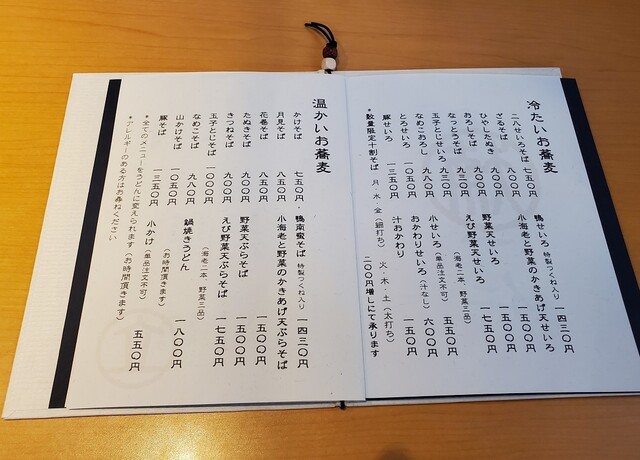 冷たいお蕎麦
二八せいろそば 七五〇円
ざるそば 八〇〇円
ひやしたぬき 九〇〇円
おろしそば 九〇〇円
なっとうそば 九三〇円
玉子とじせいろ 九三〇円
なめこおろし 九八〇円
とろせいろ 一〇五〇円
豚せいろ 一三五〇円
鴨せいろ 特製つくね入り 一四三〇円
小海老と野菜のかきあげ天せいろ 一五〇〇円
野菜天せいろ 一五〇〇円
えび野菜天せいろ 一七五〇円
(海老二本 野菜三品)
小せいろ (単品注文不可) 五五〇円
おかわりせいろ (汁なし) 六〇〇円
汁おかわり 一五〇円
*数量限定十割そば 月・水・金(細打ち) 火・木・土(太打ち)
二〇〇円増しにて承ります
温かいお蕎麦
かけそば 七五〇円
月見そば 八五〇円
花巻そば 八五〇円
たぬきそば 九〇〇円
きつねそば 九〇〇円
玉子とじそば 一〇〇円
なめこそば 九八〇円
山かけそば 一〇五〇円
豚そば 一三五〇円
鴨南蛮そば 特製つくね入り 一四三〇円
小海老と野菜のかきあげ天ぷらそば 一五〇〇円
野菜天ぷらそば 一五〇〇円
えび野菜天ぷらそば 一七五〇円
(海老二本 野菜三品)
鍋焼きうどん 一八〇〇円
(お時間頂きます)
小かけ (単品注文不可) 五五〇円
*全てのメニューをうどんに変えられます(お時間頂きます)
*アレルギーのある方はお尋ねください